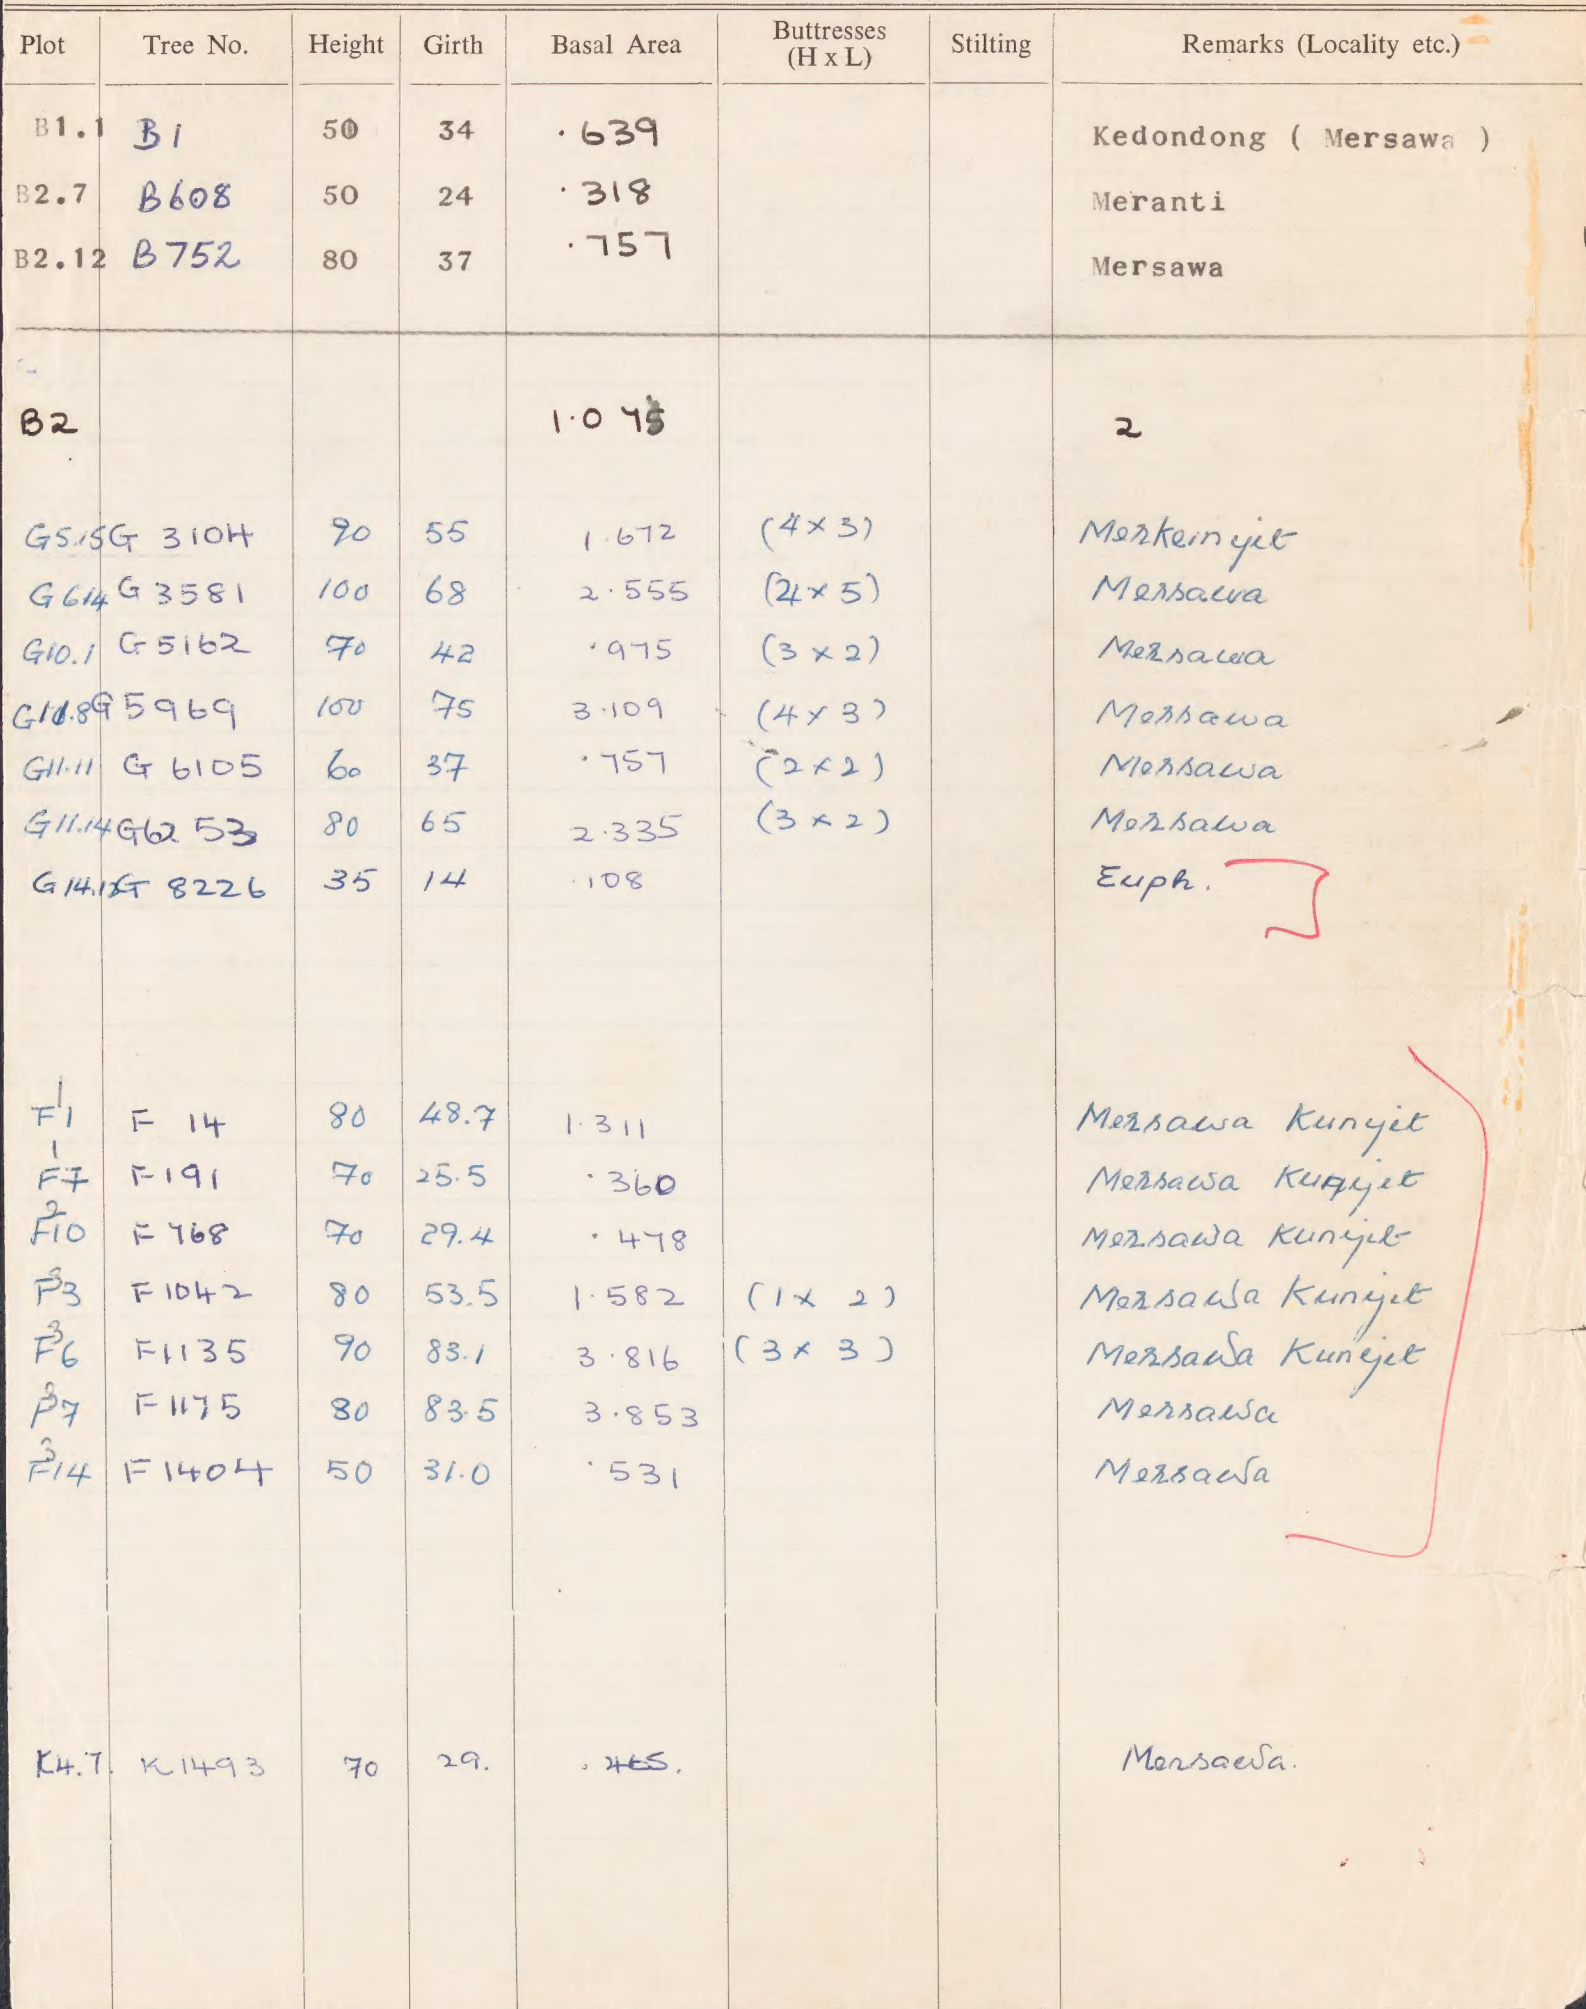 Plot Tree No. Height Girth Basal Area Buttresses (H x L) Stilting Remarks (Locality etc.)
B1.1 B1 50 34 .639 Kedondong ( Mersawa )
B2.7 B608 50 24 .318 Meranti
B2.12 B752 80 37 .757 Mersawa
B2 1.075 2
G5.15 G 3104 90 55 1.672 (4 x 3) Merkeinyit
G6.14 G 3581 100 68 2.555 (4 x 5) Mersawa
G10.1 G 5162 70 42 .975 (3 x 2) Mersawa
G11.8 G 5969 100 75 3.109 (4 x 3) Mersawa
G11.11 G 6105 60 37 .757 (2 x 2) Mersawa
G11.14 G6253 80 65 2.335 (3 x 2) Mersawa
G 8226 35 14 .108 Euph.
F1 1 F 14 80 48.7 1.311 Mersawa Kunyit
F1 7 F 191 70 25.5 .360 Mersawa Kunyit
F2 10 F 768 70 29.4 .478 Mersawa Kunyit
F3 3 F 1042 80 53.5 1.582 (1 x 2) Mersawa Kunyit
F3 6 F 1135 90 83.1 3.816 (3 x 3) Mersawa Kunyit
F3 7 F 1175 80 83.5 3.853 Mersawa
F3 14 F 1404 50 31.0 .531 Mersawa
K4.7. K1493 70 29. .465. Mersawa.